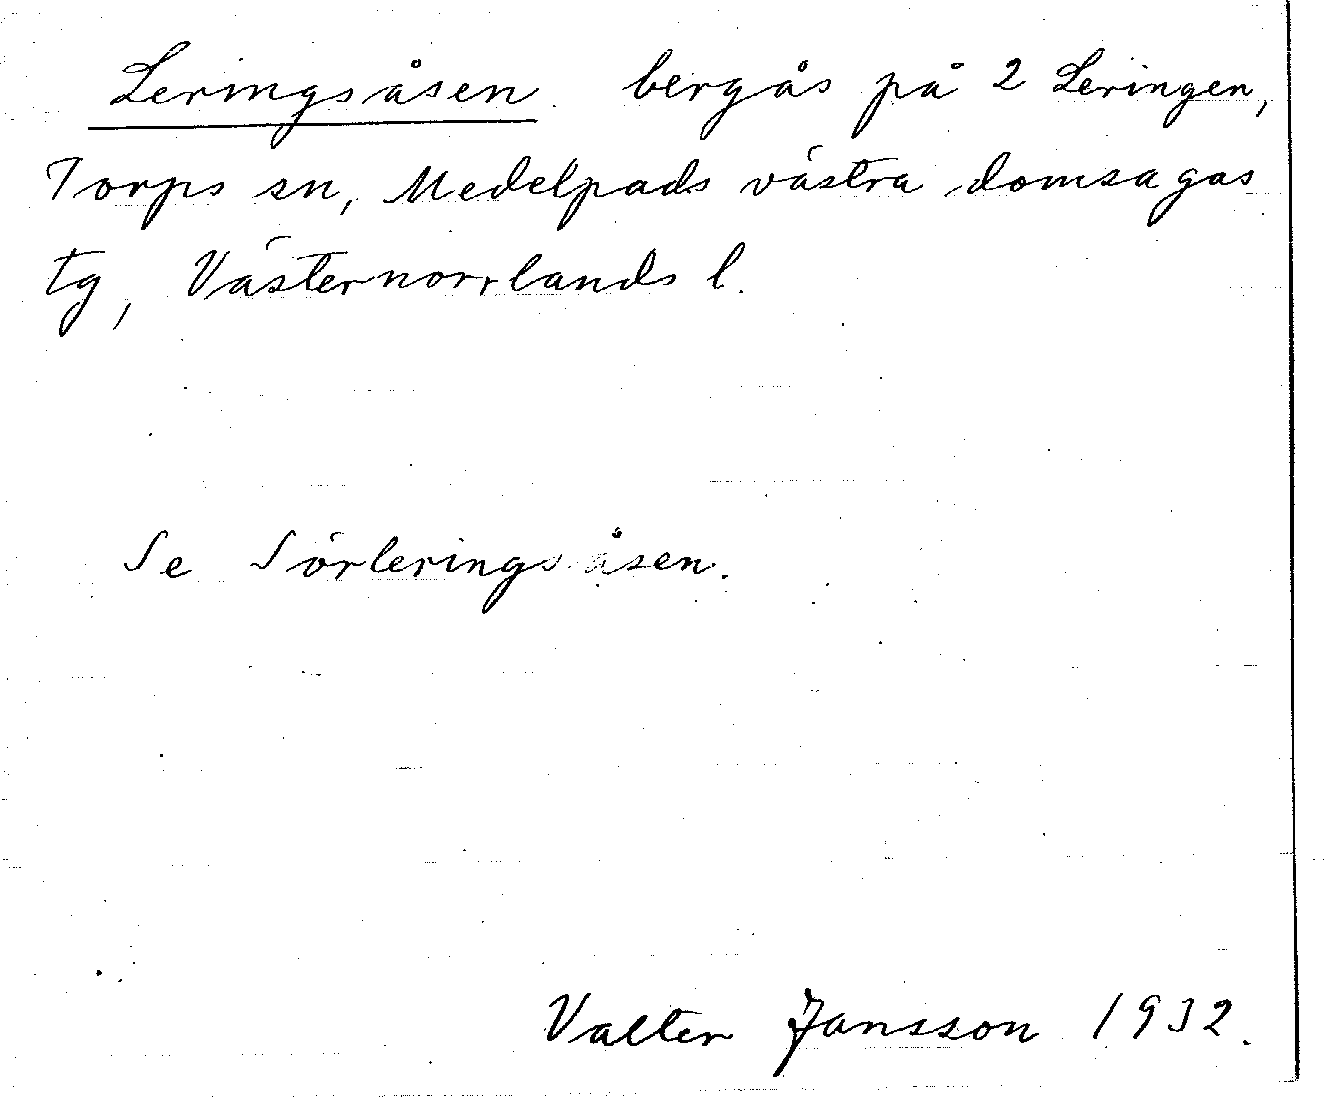 Leringsåsen. bergås på 2 Leringen,
Torps sn, Medelpads västra domsagas
tg, Västernorrlands l.
Se Sörleringsåsen.
Valter Jansson 1932.